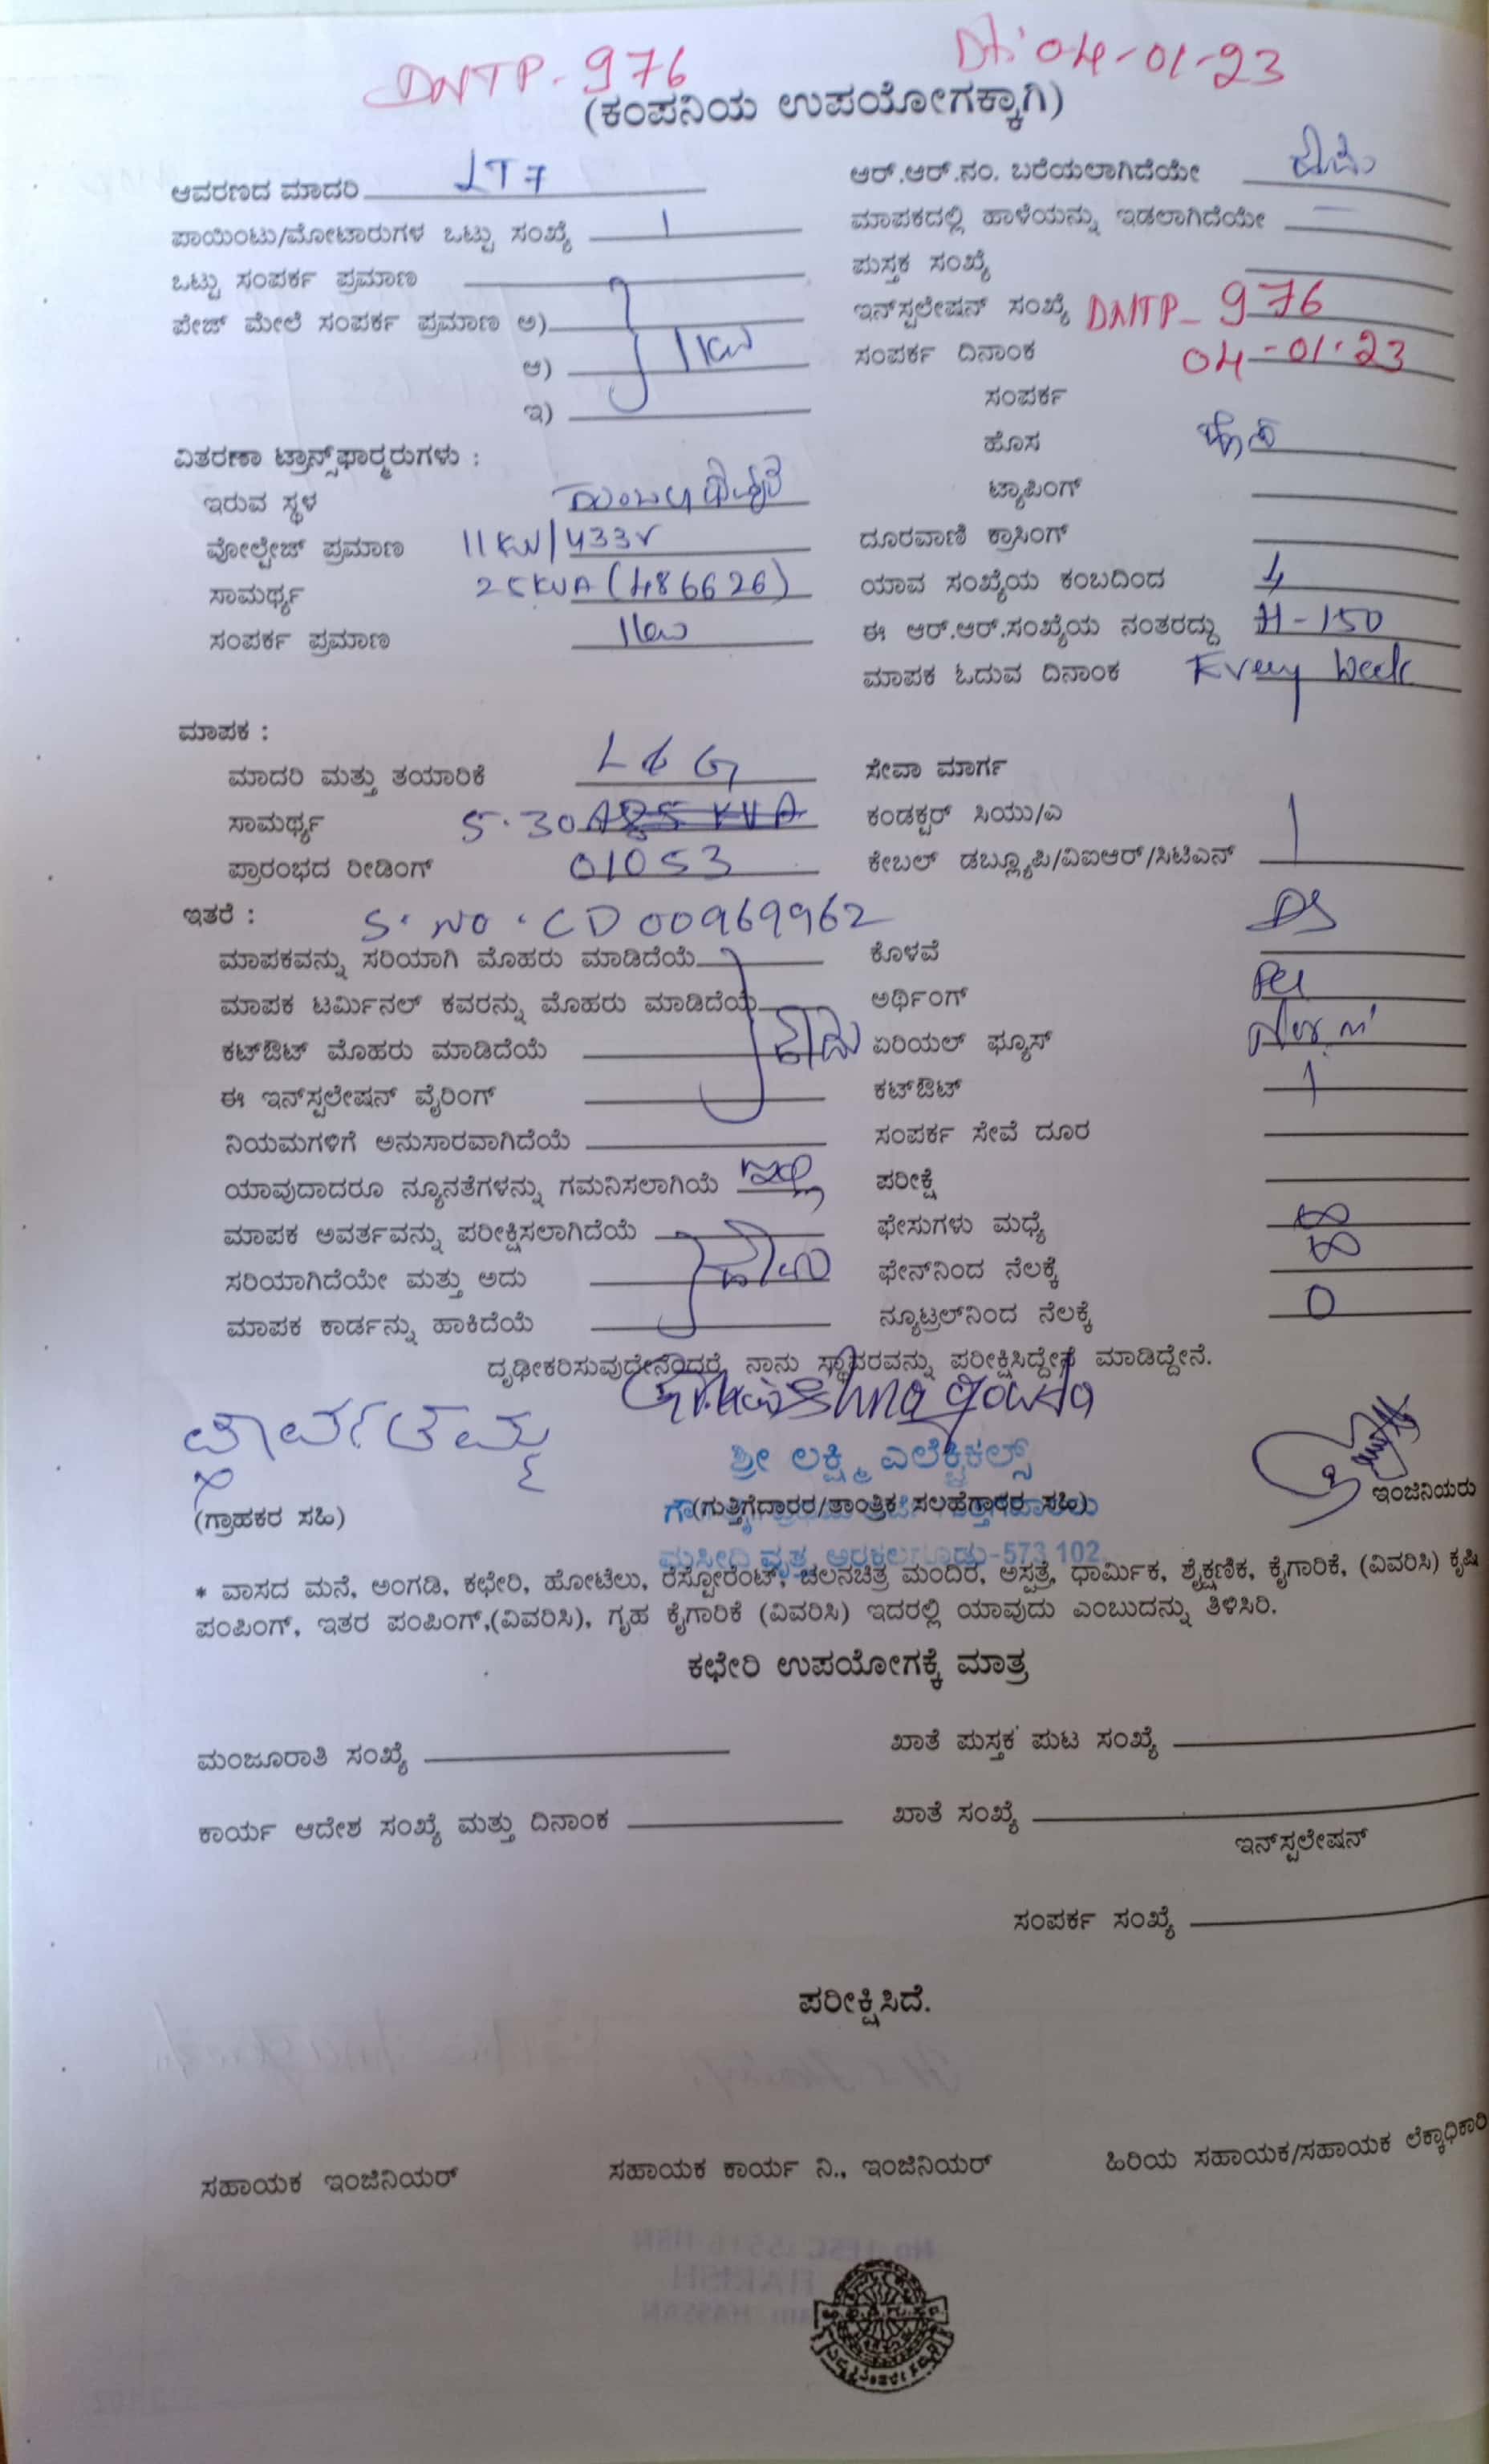 DNTP - 976 Dt: 04-01-23
(ಕಂಪನಿಯ ಉಪಯೋಗಕ್ಕಾಗಿ)
ಆವರಣದ ಮಾದರಿ LT7
ಪಾಯಿಂಟು/ಮೋಟಾರುಗಳ ಒಟ್ಟು ಸಂಖ್ಯೆ 1
ಒಟ್ಟು ಸಂಪರ್ಕ ಪ್ರಮಾಣ
ಪೇಜ್ ಮೇಲೆ ಸಂಪರ್ಕ ಪ್ರಮಾಣ ಅ)
ಆ) 1KW
ಇ)
ವಿತರಣಾ ಟ್ರಾನ್ಸ್‌ಫಾರ್‍ಮರುಗಳು :
ಇರುವ ಸ್ಥಳ
ವೋಲ್ಟೇಜ್ ಪ್ರಮಾಣ 11KV/433V
ಸಾಮರ್ಥ್ಯ 25KVA (486626)
ಸಂಪರ್ಕ ಪ್ರಮಾಣ
ಆರ್.ಆರ್.ನಂ. ಬರೆಯಲಾಗಿದೆಯೇ
ಮಾಪಕದಲ್ಲಿ ಹಾಳೆಯನ್ನು ಇಡಲಾಗಿದೆಯೇ
ಪುಸ್ತಕ ಸಂಖ್ಯೆ
ಇನ್‌ಸ್ಪಲೇಷನ್ ಸಂಖ್ಯೆ DNTP - 976
ಸಂಪರ್ಕ ದಿನಾಂಕ 04-01-23
ಸಂಪರ್ಕ
ಹೊಸ
ಟ್ಯಾಪಿಂಗ್
ದೂರವಾಣಿ ಕ್ರಾಸಿಂಗ್
ಯಾವ ಸಂಖ್ಯೆಯ ಕಂಬದಿಂದ
ಈ ಆರ್.ಆರ್.ಸಂಖ್ಯೆಯ ನಂತರದ್ದು H-150
ಮಾಪಕ ಓದುವ ದಿನಾಂಕ Every Week
ಮಾಪಕ :
ಮಾದರಿ ಮತ್ತು ತಯಾರಿಕೆ L & G
ಸಾಮರ್ಥ್ಯ 5-30A
ಪ್ರಾರಂಭದ ರೀಡಿಂಗ್ 01053
ಸೇವಾ ಮಾರ್ಗ
ಕಂಡಕ್ಟರ್ ಸಿಯು/ಎ
ಕೇಬಲ್ ಡಬ್ಲ್ಯೂಪಿ/ವಿಐಆರ್/ಸಿಟಿಎನ್
ಇತರೆ : S. NO. CD 00969962
ಮಾಪಕವನ್ನು ಸರಿಯಾಗಿ ಮೊಹರು ಮಾಡಿದೆಯೆ
ಮಾಪಕ ಟರ್ಮಿನಲ್ ಕವರನ್ನು ಮೊಹರು ಮಾಡಿದೆಯೆ
ಕಟ್‌ಔಟ್ ಮೊಹರು ಮಾಡಿದೆಯೆ
ಈ ಇನ್‌ಸ್ಪಲೇಷನ್ ವೈರಿಂಗ್
ನಿಯಮಗಳಿಗೆ ಅನುಸಾರವಾಗಿದೆಯೆ
ಯಾವುದಾದರೂ ನ್ಯೂನತೆಗಳನ್ನು ಗಮನಿಸಲಾಗಿಯೆ ಇಲ್ಲ
ಮಾಪಕ ಅವರ್ತವನ್ನು ಪರೀಕ್ಷಿಸಲಾಗಿದೆಯೆ
ಸರಿಯಾಗಿದೆಯೇ ಮತ್ತು ಅದು
ಮಾಪಕ ಕಾರ್ಡನ್ನು ಹಾಕಿದೆಯೆ
ಕೊಳವೆ
ಅರ್ಥಿಂಗ್
ಏರಿಯಲ್ ಫ್ಯೂಸ್
ಕಟ್‌ಔಟ್ 1
ಸಂಪರ್ಕ ಸೇವೆ ದೂರ
ಪರೀಕ್ಷೆ
ಫೇಸುಗಳು ಮಧ್ಯೆ ∞
ಫೇನ್‌ನಿಂದ ನೆಲಕ್ಕೆ ∞
ನ್ಯೂಟ್ರಲ್‌ನಿಂದ ನೆಲಕ್ಕೆ 0
ದೃಢೀಕರಿಸುವುದೇನೆಂದರೆ, ನಾನು ಸ್ಥಾವರವನ್ನು ಪರೀಕ್ಷಿಸಿದ್ದೇನೆ ಮಾಡಿದ್ದೇನೆ.
ಪಾರ್ವತಮ್ಮ
ಶ್ರೀ ಲಕ್ಷ್ಮಿ ಎಲೆಕ್ಟ್ರಿಕಲ್ಸ್
(ಗ್ರಾಹಕರ ಸಹಿ) (ಗುತ್ತಿಗೆದಾರರ/ತಾಂತ್ರಿಕ ಸಲಹೆಗಾರರ ಸಹಿ) ಇಂಜಿನಿಯರು
ಮಸೀದಿ ವೃತ್ತ, ಅರಕಲಗೂಡು-573 102.
* ವಾಸದ ಮನೆ, ಅಂಗಡಿ, ಕಛೇರಿ, ಹೋಟೆಲು, ರೆಸ್ಟೋರೆಂಟ್, ಚಲನಚಿತ್ರ ಮಂದಿರ, ಅಸ್ಪತ್ರೆ, ಧಾರ್ಮಿಕ, ಶೈಕ್ಷಣಿಕ, ಕೈಗಾರಿಕೆ, (ವಿವರಿಸಿ) ಕೃಷಿ
ಪಂಪಿಂಗ್, ಇತರ ಪಂಪಿಂಗ್,(ವಿವರಿಸಿ), ಗೃಹ ಕೈಗಾರಿಕೆ (ವಿವರಿಸಿ) ಇದರಲ್ಲಿ ಯಾವುದು ಎಂಬುದನ್ನು ತಿಳಿಸಿರಿ.
ಕಛೇರಿ ಉಪಯೋಗಕ್ಕೆ ಮಾತ್ರ
ಮಂಜೂರಾತಿ ಸಂಖ್ಯೆ ಖಾತೆ ಪುಸ್ತಕ ಪುಟ ಸಂಖ್ಯೆ
ಕಾರ್ಯ ಆದೇಶ ಸಂಖ್ಯೆ ಮತ್ತು ದಿನಾಂಕ ಖಾತೆ ಸಂಖ್ಯೆ
ಇನ್‌ಸ್ಪಲೇಷನ್
ಸಂಪರ್ಕ ಸಂಖ್ಯೆ
ಪರೀಕ್ಷಿಸಿದೆ.
ಸಹಾಯಕ ಇಂಜಿನಿಯರ್ ಸಹಾಯಕ ಕಾರ್ಯ ನಿ., ಇಂಜಿನಿಯರ್ ಹಿರಿಯ ಸಹಾಯಕ/ಸಹಾಯಕ ಲೆಕ್ಕಾಧಿಕಾರಿ